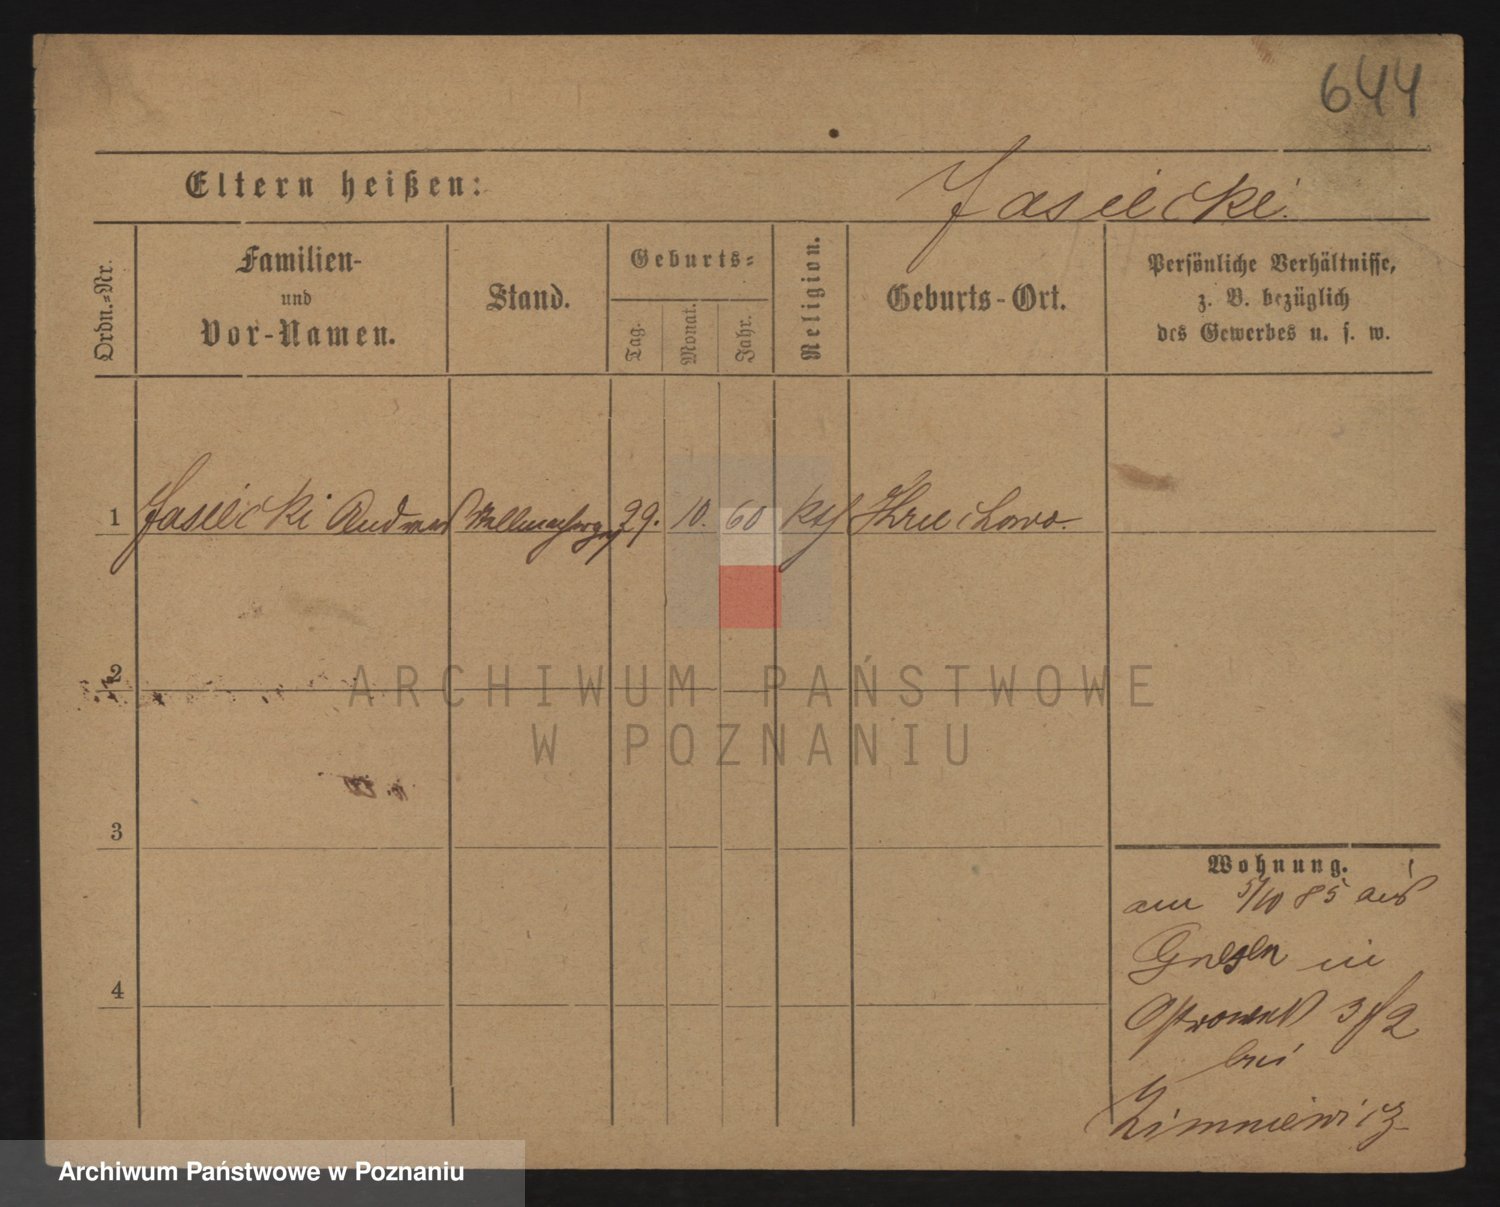 644
Eltern heißen:
Jasiecki.
Ordn.=Nr.
Familien-
und
Vor-Namen.
Stand.
Geburts=
Tag.
Monat.
Jahr.
Religion.
Geburts-Ort.
Persönliche Verhältnisse,
z. B. bezüglich
des Gewerbes u. s. w.
1 Jasiecki Andreas 29. 10. 60 kth
2
3
4
Wohnung.
am 5/10 85 aus
Gnesen in
Ostrowek 3/2
bei
Zimniewicz
ARCHIWUM PAŃSTWOWE
W POZNANIU
Archiwum Państwowe w Poznaniu